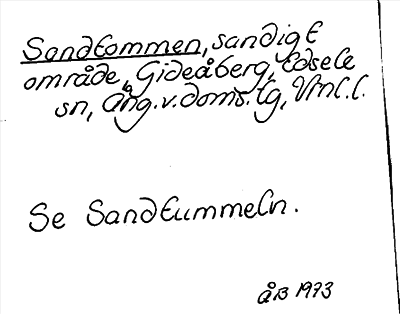 Sandtommen, sandigt
område, Gideåberg, Edsele
sn, Ång. v. doms. lg, Vnl. l.
Se Sandtummeln.
ÅB 1973